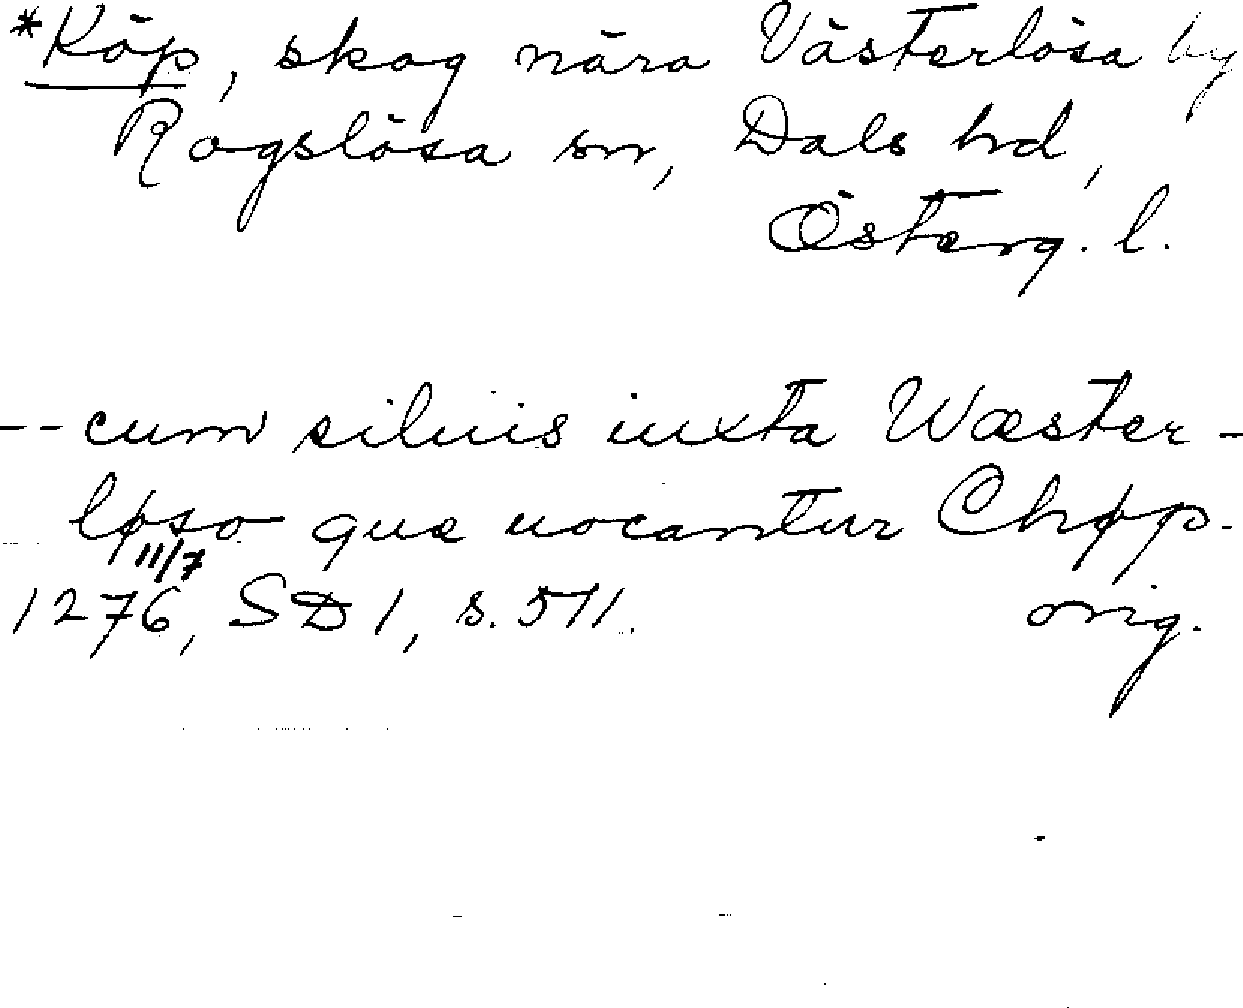 *Köp, skog nära Västerlösa by
Rogslösa sn, Dals hd,
Österg. l.
-- cum siluis iuxta Wæster-
løso que uocantur Chøp.
11/7
1276, SD 1, s. 511. orig.